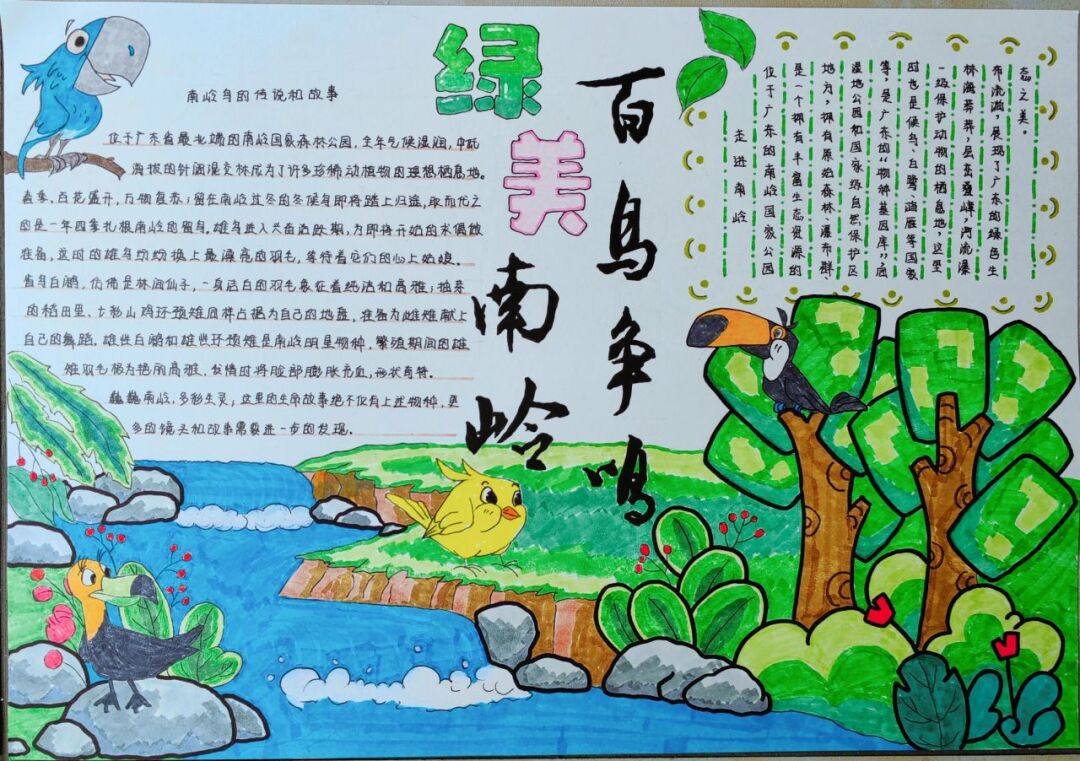 绿美南岭
百鸟争鸣
南岭鸟的传说和故事
位于广东省最北端的南岭国家森林公园,全年气候温润,中低
海拔的针阔混交林成为了许多珍稀动植物的理想栖息地。
春季,百花盛开,万物复苏;留在南岭过冬的冬候鸟即将踏上归途,取而代之
的是一年四季扎根南岭的留鸟,雄鸟进入天奋活跃期,为即将开始的求偶做
准备,这时的雄鸟纷纷换上最漂亮的羽毛,等待着它们的心上姑娘。
看鸟白鹇,仿佛是林间仙子,一身洁白的羽毛象征着纯洁和高雅;抽来
的稻田里、七彩山鸡环颈雉同样占据为自己的地盘,准备为雌雉献上
自己的舞蹈。雄性白鹇和雄性环颈雉是南岭明星物种,繁殖期间的雄
雉羽毛极为艳丽高雅,发情时将脸部膨胀充血,形状奇特。
巍巍南岭,多彩生灵,这里的生命故事绝不仅有上述物种,更
多的镜头和故事需要进一步的发现。
走进南岭
位于广东的南岭国家公园
是一个拥有丰富生态资源的
地方,拥有原始森林、瀑布群、
湿地公园和国家级自然保护区
等,是广东的“物种基因库”。同
时也是候鸟、白鹭、鸿雁等国家
一级保护动物的栖息地。这里
林海莽莽,层峦叠嶂,河流瀑
布流淌,展现了广东的绿色生
态之美。